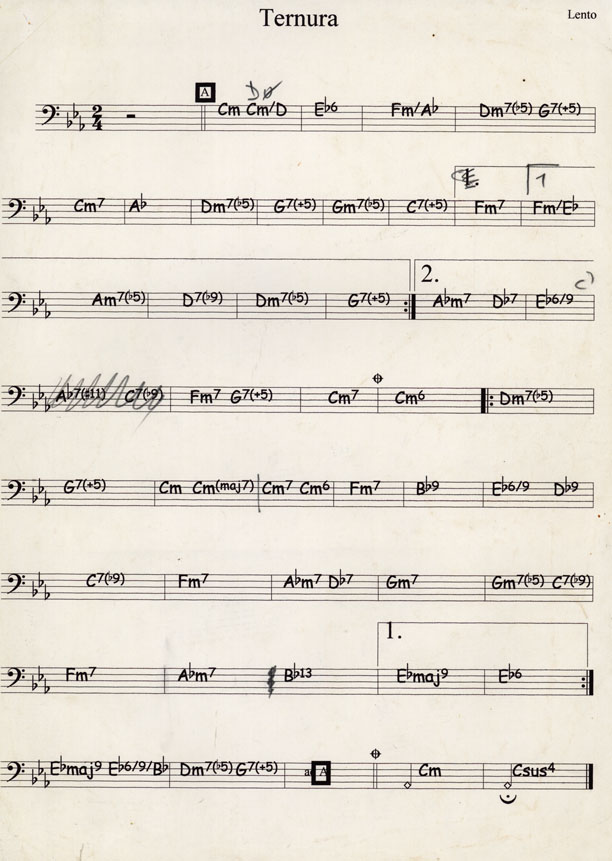 Ternura
Lento
A
DØ
2/4 Cm Cm/D E♭6 Fm/A♭ Dm7(♭5) G7(+5)
1
Cm7 A♭ Dm7(♭5) G7(+5) Gm7(♭5) C7(+5) Fm7 Fm/E♭
2.
Am7(♭5) D7(♭9) Dm7(♭5) G7(+5) A♭m7 D♭7 E♭6/9
A♭7(♯11) C7(♭9) Fm7 G7(+5) Cm7 Cm6 Dm7(♭5)
G7(+5) Cm Cm(maj7) Cm7 Cm6 Fm7 B♭9 E♭6/9 D♭9
C7(♭9) Fm7 A♭m7 D♭7 Gm7 Gm7(♭5) C7(♭9)
1.
Fm7 A♭m7 B♭13 E♭maj9 E♭6
E♭maj9 E♭6/9/B♭ Dm7(♭5) G7(+5) A Cm Csus4